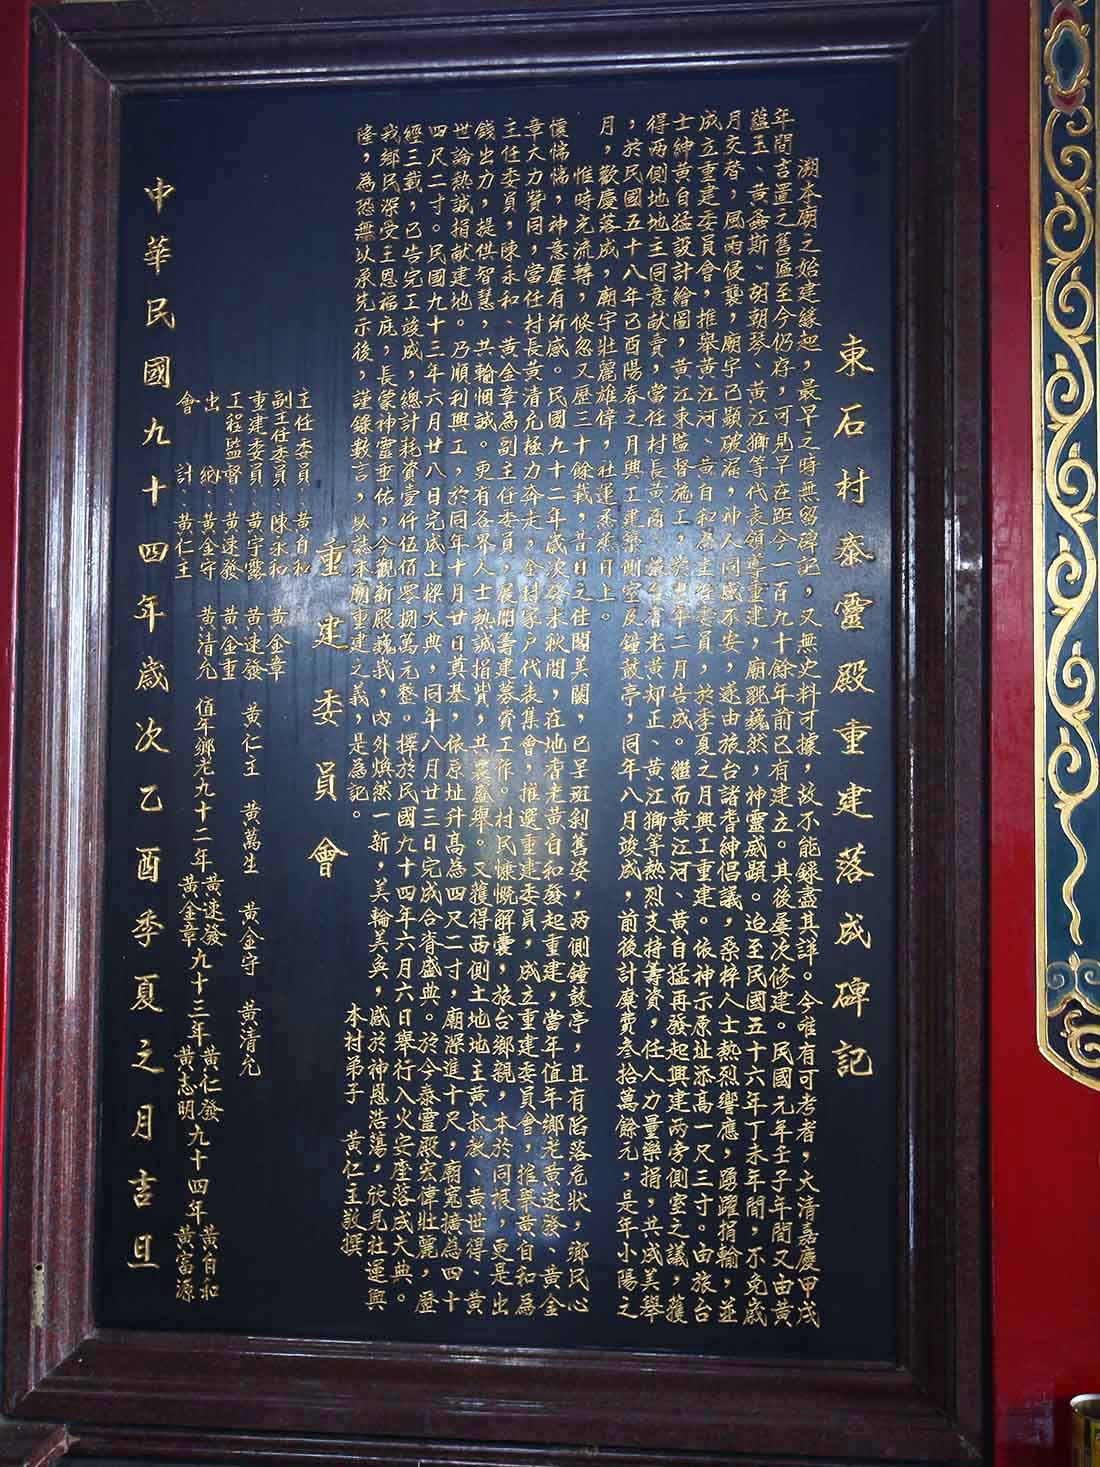 東石村泰靈殿重建落成碑記
溯本廟之始建緣起，最早之時無留碑記，又無史料可據，故不能錄盡其詳。今唯有可考者，大清嘉慶甲戌
年間吉置之舊匾至今仍存，可見早在距今一百九十餘年前已有建立。其後屢次修建。民國元年壬子年間又由黃
蘊玉、黃螽斯、胡朝琴、黃江獅等代表領導重建，廟貌巍然，神靈威顯。迨至民國五十六年丁未年間，不免歲
月交替，風雨侵襲，廟宇已顯破漏，神人同感不安，遂由旅台諸耆紳倡議，桑梓人士熱烈響應，踴躍捐輸，並
成立重建委員會，推舉黃江河、黃自和為主任委員，於季夏之月興工重建。依神示原址添高一尺三寸。由旅台
士紳黃自猛設計繪圖，黃江東監督施工，於翌年二月告成。繼而黃江河、黃自猛再發起興建兩旁側室之議，獲
得兩側地地主同意献賣，當任村長黃酉、嚴生耆老黃却正、黃江獅等熱烈支持籌資，任人力量樂捐，共成美舉
，於民國五十八年己酉陽春之月興工建築側室及鐘鼓亭，同年八月竣成，前後計糜費參拾萬餘元，是年小陽之
月，歡慶落成，廟宇壯麗雄偉，社運蒸蒸日上。
惟時光流轉，倏忽又歷三十餘載，昔日之佳閣美闕，已呈斑剝舊姿，两側鐘鼓亭，且有陷落危狀，鄉民心
懷惴惴，神意屢有所感。民國九十二年歲次癸未秋間，在地耆老黃自和發起重建，當年值年鄉老黃速發、黃金
章大力贊同，當任村長黃清允極力奔走，全村家戶代表集會，推選重建委員，成立重建委員會，推舉黃自和為
主任委員，陳永和、黃金章為副主任委員，展開籌建募資工作。村民慷慨解囊，旅台鄉親，本於同根，更是出
錢出力，提供智慧，共輸悃誠。更有各界人士熱誠捐貲，共襄盛舉。又獲得西側土地地主黃叔教、黃世得、黃
世論熱誠捐献建地。乃順利興工，於同年十月廿日奠基，依原址升高為四尺二寸，廟深進十尺，廟寬擴為四十
四尺二寸。民國九十三年六月廿八日完成上樑大典，同年八月廿三日完成合脊盛典。於今泰靈殿宏偉壯麗，歷
經三載，已告完工竣成，總計耗資壹仟伍佰零捌萬元整。擇於民國九十四年六月六日舉行入火安座落成大典。
我鄉民深受王恩福庇，長蒙神靈垂佑，今觀新殿巍峩，內外煥然一新，美輪美奐，感於神恩浩蕩，欣見社運興
隆，為恐無以承先示後，謹錄數言，以誌本廟重建之義，是為記。
本村弟子 黃仁王敬撰
重建委員會
主任委員：黃自和
副主任委員：陳永和 黃金章
重建委員：黃宇露 黃速發 黃仁王 黃萬生 黃金守 黃清允
工程監督：黃速發 黃金重
出納：黃金守 黃清允 值年鄉老九十二年黃速發黃金章九十三年黃仁發黃志明九十四年黃自和黃富源
會計：黃仁王
中華民國九十四年歲次乙酉季夏之月吉旦